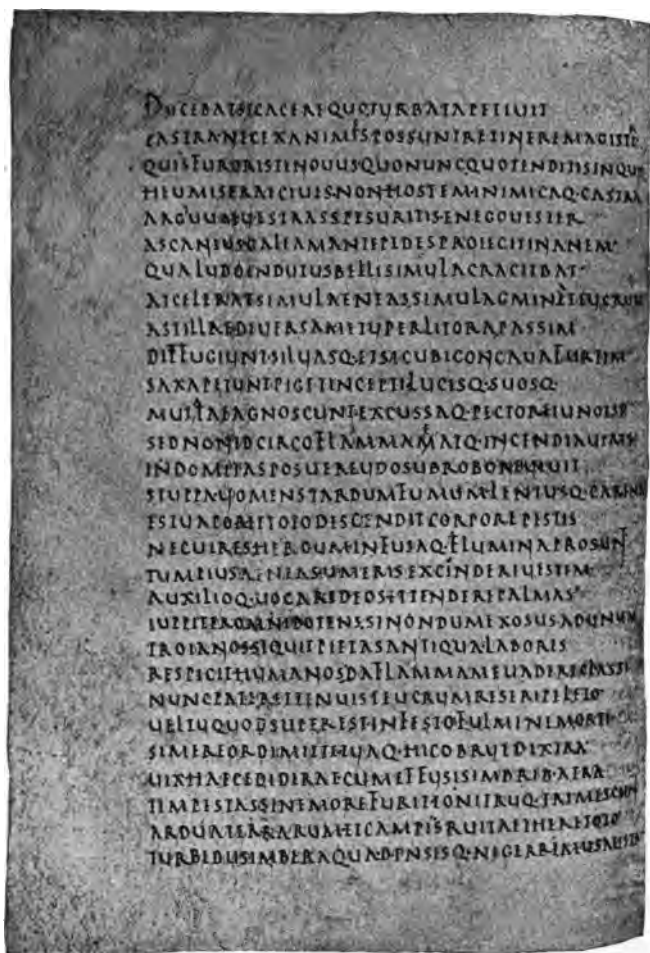 DUCEBATSICACEREQUOTURBATAPETIUIT
CASTRA·NECEXANIMESPOSSUNTRETINEREMAGISTR
QUISFURORISTENOUUSQUONUNCQUOTENDITISINQUIT
HEUMISERAECIUIS·NONHOSTEMINIMICAQ·CASTRA
ARGIUUMUESTRASSPESURITIS·ENEGOUESTER
ASCANIUSGALEAMANTEPEDESPROIECITINANEM·
QUALUDOENDUTUSBELLISIMULACRACIEBAT·
ATCELERATSIMULAENEASSIMULAGMINETEUCRUM
ASTILLAEDIUERSAMETUPERLITORAPASSIM
DIFFUGIUNT·SILUASQ·ETSICUBICONCAUAFURTIM·
SAXAPETUNTPIGETINCEPTILUCISQ·SUOSQ·
MUTATAEAGNOSCUNTEXCUSSAQ·PECTOREIUNOEST
SEDNONIDCIRCOFLAMMAMATQ·INCENDIAUIRIS
INDOMITASPOSUEREUDOSUBROBOREUIUIT
STUPPAUOMENSTARDUMFUMUMLENTUSQ·CARINAS
ESTUAPORETTOTODISCENDITCORPOREPESTIS
NECUIRESHEROUMINFUSAQ·FLUMINAPROSUNT
TUMPIUSAENEASUMERISEXCINDEREUESTEM
AUXILIOQ·UOCAREDEOSETTENDEREPALMAS
IUPPITEROMNIPOTENSSINONDUMEXOSUSADUNUM
TROIANOSSIQUITPIETASANTIQUALABORIS
RESPICITHUMANOSDAFLAMMAMEUADERECLASSI
NUNCPATERETTENUISTEUCRUMRESERIPELETO
UELTUQUODSUPERESTINFESTOFULMINEMORTI·
SIMEREORDIMITTETUAQ·HICOBRUEDEXTRA
UIXHAECEDIDERAECUMEFFUSISIMBRIB·ATRA
TEMPESTASSINEMOREFURITTONITRUQ·TREMESCUNT
ARDUATERRARUMETCAMPISRUITAETHERETOTO
TURBIDUSIMBERAQUADENSISQ·NIGERRIMUSAUSTRIS